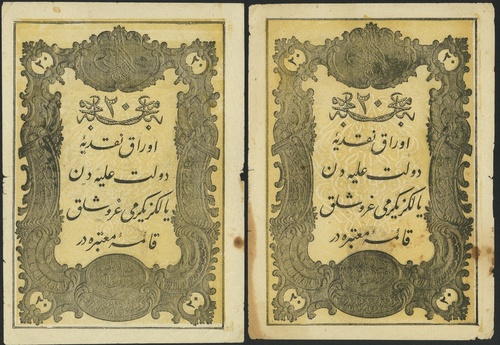 ٢٠ ٢٠
٢٠
اوراق نقدیهٔ
دولت علیه دن
یالکز یکرمی غروشلق
قائمهٔ معتبره در
٢٠ ٢٠
٢٠ ٢٠
٢٠
اوراق نقدیهٔ
دولت علیه دن
یالکز یکرمی غروشلق
قائمهٔ معتبره در
٢٠ ٢٠